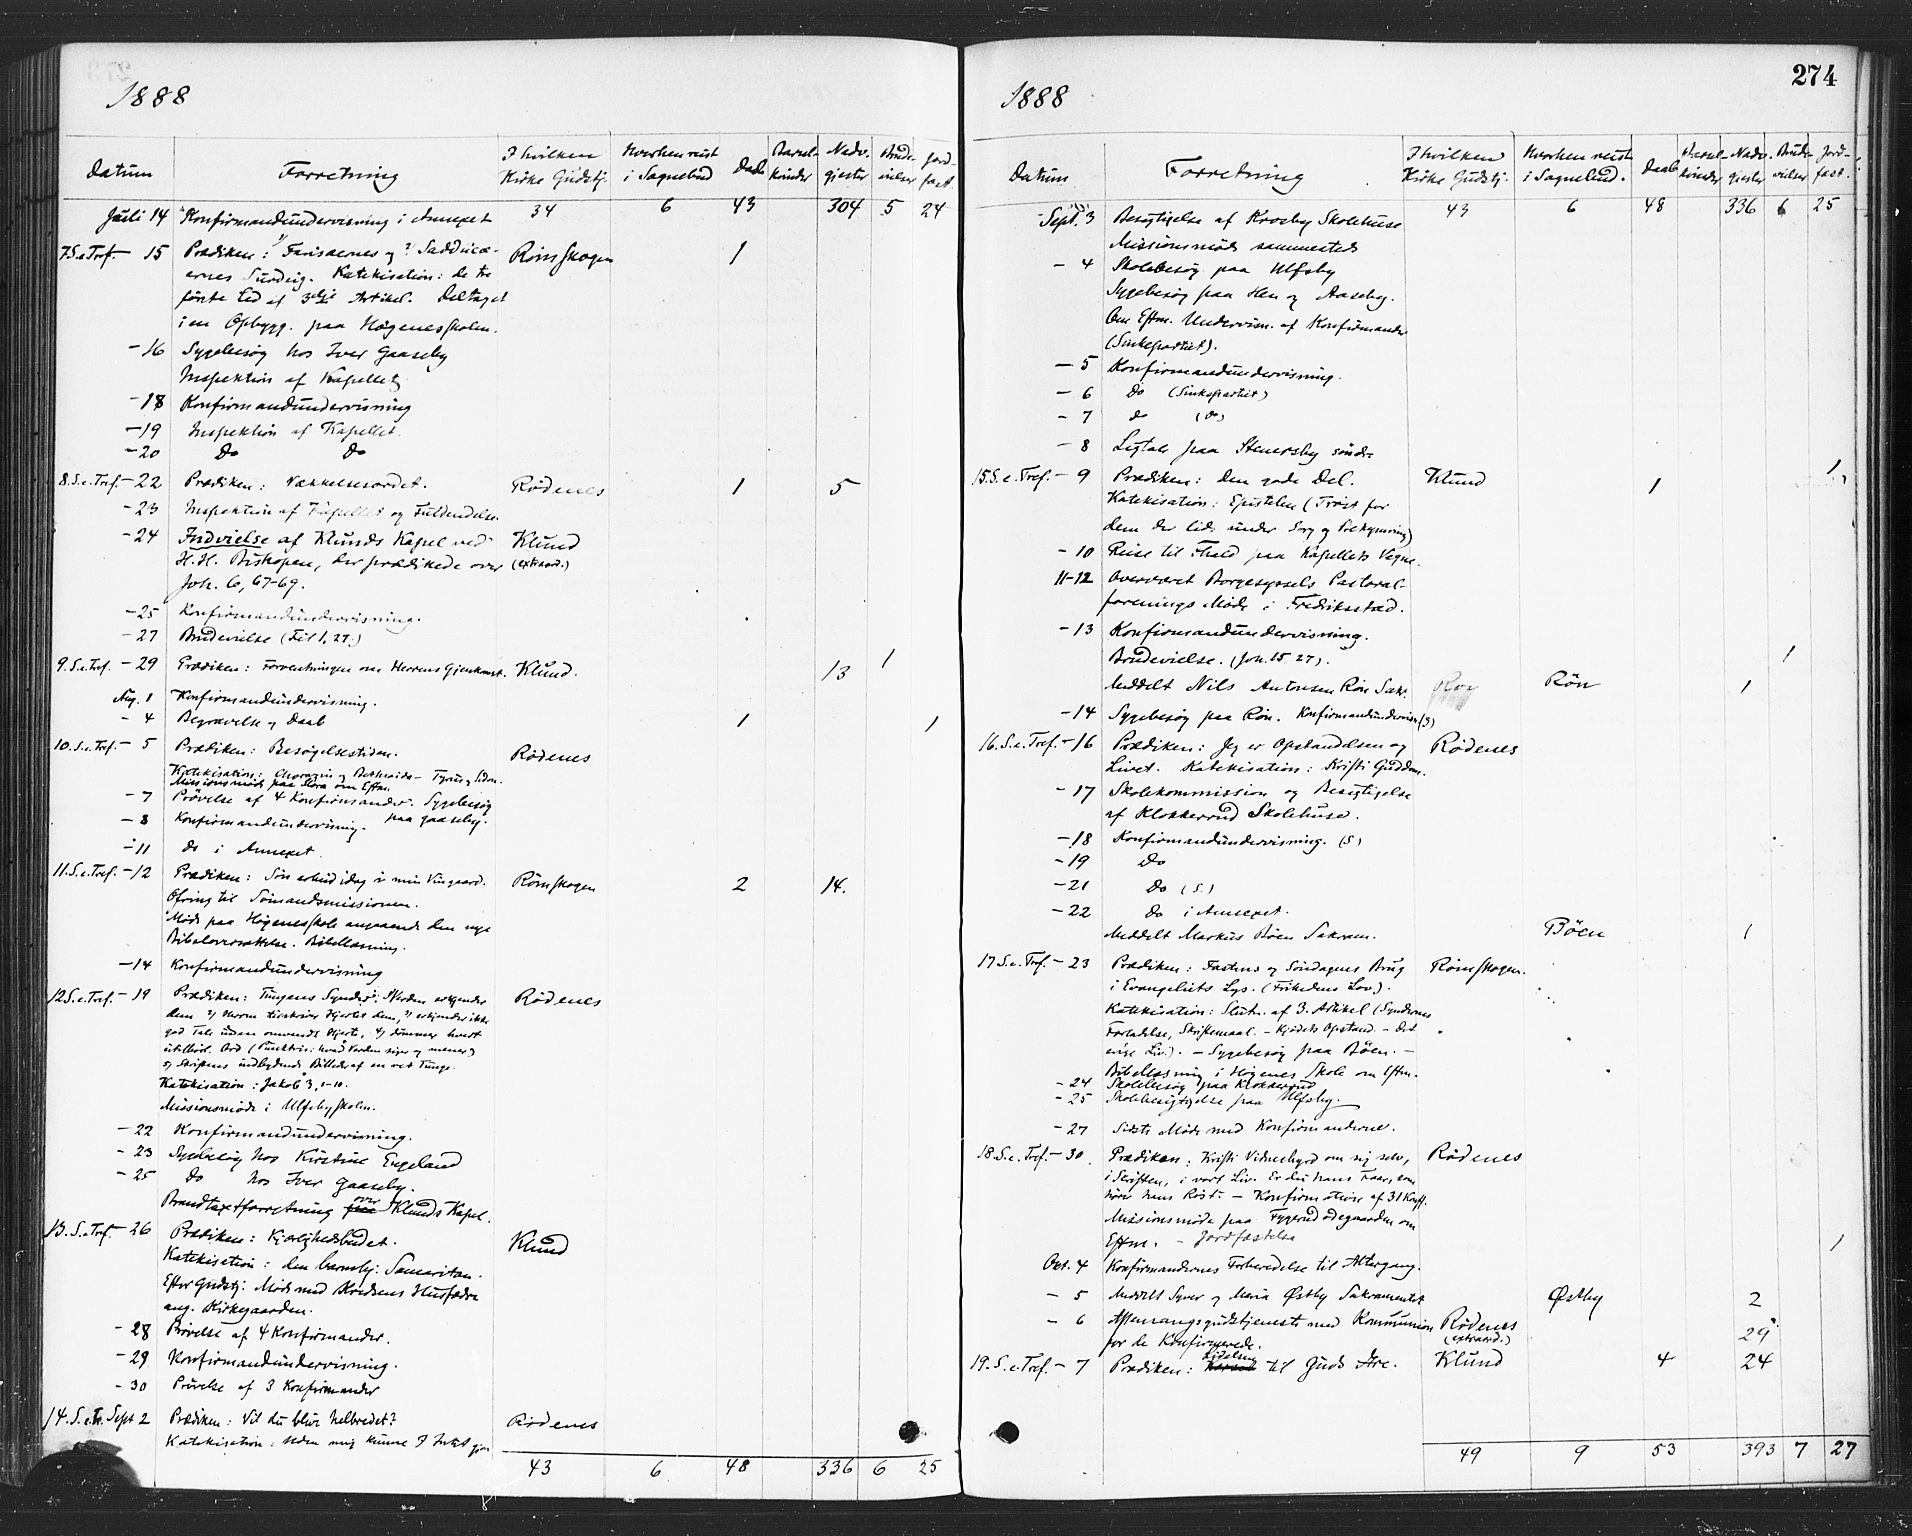 1888
Datum Forretning I hvilken Kirke Gudstj. Hvorhen reist i Sognebud Daab Barselkvinder Nadv. gjester Brudevielser Jordfæst.
Juli 14 Konfirmandundervisning i Annexet 34 6 43 304 5 24
7 S.e.Tref. – 15 Prædiken: Farisæernes og Sadducæ- Römskogen 1
ernes Surdeig. Katekisation: de tre
første Led af 3die Artikel. Deltaget
i en Opbygg. paa Högenesskolen.
– 16 Sygebesøg hos Iver Gaaseby
Inspektion af Kapellet
– 18 Konfirmandundervisning
– 19 Inspektion af Kapellet.
– 20 Do Do
8. S.e.Tref. – 22 Prædiken: Vækkelsesordet. Rödenes 1 5
– 23 Inspektion af Kapellet og Fuldendelse.
– 24 Indvielse af Klunds Kapel ved Klund
H.H. Biskopen, der prædikede over (extraord.)
Joh. 6, 67-69.
– 25 Konfirmandundervisning.
– 27 Brudevielse (Fil 1, 27.) 1
9. S.e.Tref. – 29 Prædiken: Forventningen om Herrens Gjenkomst. Klund. 13
Aug. 1 Konfirmandundervisning.
– 4 Begravelse og Daab 1 1
10. S.e.Tref. – 5 Prædiken: Besøgelsestiden. Rödenes
Katekisation: Chorazin og Bethsaida – Tyrus og Sidon.
Missionsmöde paa Slora om Eftm.
– 7 Prövelse af 4 Konfirmander. Sygebesøg
paa Gaaseby.
– 8 Konfirmandundervisning.
– 11 do i Annexet.
11. S.e.Tref. – 12 Prædiken: Sön arbeid idag i min Vingaard. Römskogen 2 14.
Ofring til Sömandsmissionen.
Möde paa Högenesskole angaaende den nye
Bibeloversættelse. Bibellæsning.
– 14 Konfirmandundervisning
12 S.e.Tref. – 19 Prædiken: Tungens Synder: Verden erkjender Rödenes
dem 2) Herren tilskriver Hjertet dem, 3) erkjender ikke
god Tale uden omvendt Hjerte, 4) dömmer hvert
utilbörl. Ord (Punktvis: hvad Verden siger og mener)
5) Skriftens indbydende Billede af en ret Tunge.
Katekisation: Jakob 3, 1-10.
Missionsmöde i Ulfsbyskolen.
– 22 Konfirmandundervisning.
– 23 Sygebesøg hos Kirstine Engeland
– 25 Do hos Iver Gaaseby.
Brandtaxtforretning over Klunds Kapel.
13. S.e.Tref. – 26 Prædiken: Kjærlighedsbudet. Klund
Katekisation: den barmhj. Samaritan.
Efter Gudstj. Möde med Kredsens Husfædre
ang. Kirkegaarden.
– 28 Prövelse af 4 Konfirmander.
– 29 Konfirmandundervisning.
– 30 Prövelse af 3 Konfirmander
14. S.e.Tr. Sept 2 Prædiken: Vil du blive helbredet? Rödenes
Katekisation: uden mig kunne I Intet gjøre
43 6 48 336 6 25
274
1888
Datum Forretning I hvilken Kirke Gudstj. Hvorhen reist i Sognebud. Daab Barselkvinder Nadv. gjester Brudevielser Jordfæst.
Sept. 3 Besigtigelse af Kroseby Skolehuse 43 6 48 336 6 25
Missionsmöde sammesteds
– 4 Skolebesøg paa Ulfsby
Sygebesøg paa Hen og Aaseby.
Om Eftm. Undervisn. af Konfirmander
(Sinkepartiet).
– 5 Konfirmandundervisning.
– 6 Do (Sinkepartiet)
– 7 do (do)
– 8 Ligtale paa Stenersby söndre 1
15. S.e.Tref. – 9 Prædiken: den gode Del. Klund 1
Katekisation: Epistelen (Tröst for
dem der lide under Sorg og Bekymring)
– 10 Reise til Fhald paa Kapellets Vegne.
11–12 Overværet Borgesyssels Pastoral-
forenings Möde i Fredriksstad.
– 13 Konfirmandundervisning.
Brudevielse. (Joh. 15, 27). 1
Meddelt Nils Antonsen Rön Sakr. Rön 1
– 14 Sygebesøg paa Rön. Konfirmandundervisn. (S)
16. S.e.Tref. – 16 Prædiken: Jeg er Opstandelsen og Rödenes
Livet. Katekisation: Kristi Guddom.
– 17 Skolekommission og Besigtigelse
af Klokkerud Skolehuse.
– 18 Konfirmandundervisning. (S)
– 19 Do
– 21 Do (S.)
– 22 do i Annexet.
Meddelt Markus Böen Sakram. Böen 1
17 S.e.Tref. – 23 Prædiken: Fastens og Söndagens Brug Römskogen.
i Evangeliets Lys. (Frihedens Lov).
Katekisation: Slutn. af 3. Artikel (Syndernes
Forladelse, Skriftemaal. – Kjödets Opstand. – Det
evige Liv.). – Sygebesøg paa Böen. –
Bibellæsning i Högenes Skole om Eftm.
– 24 Skolebesøg paa Klokkerud
– 25 Skolebesigtigelse paa Ulfsby.
– 27 Sidste Möde med Konfirmanderne.
18. S.e.Tref. – 30. Prædiken: Kristi Vidnesbyrd om sig selv, Rödenes
i Skriften, i vort Liv. Er du hans Faar, som
hörer hans Röst. – Konfirmation af 31 Konf.
Missionsmöde paa Fygerud ödegaarden om
Eftm. – Jordfæstelse 1
Oct. 4 Konfirmandernes Forberedelse til Altergang.
– 5 Meddelt Syver og Maria Østby Sakramentet Østby 2
– 6 Aftensangsgudstjeneste med Kommunion Rödenes 29
for de Konfirmerede. (extraord.)
19. S.e.Tref. – 7 Prædiken: Lidelsen til Guds Ære. Klund 4 24
49 9 53 393 7 27